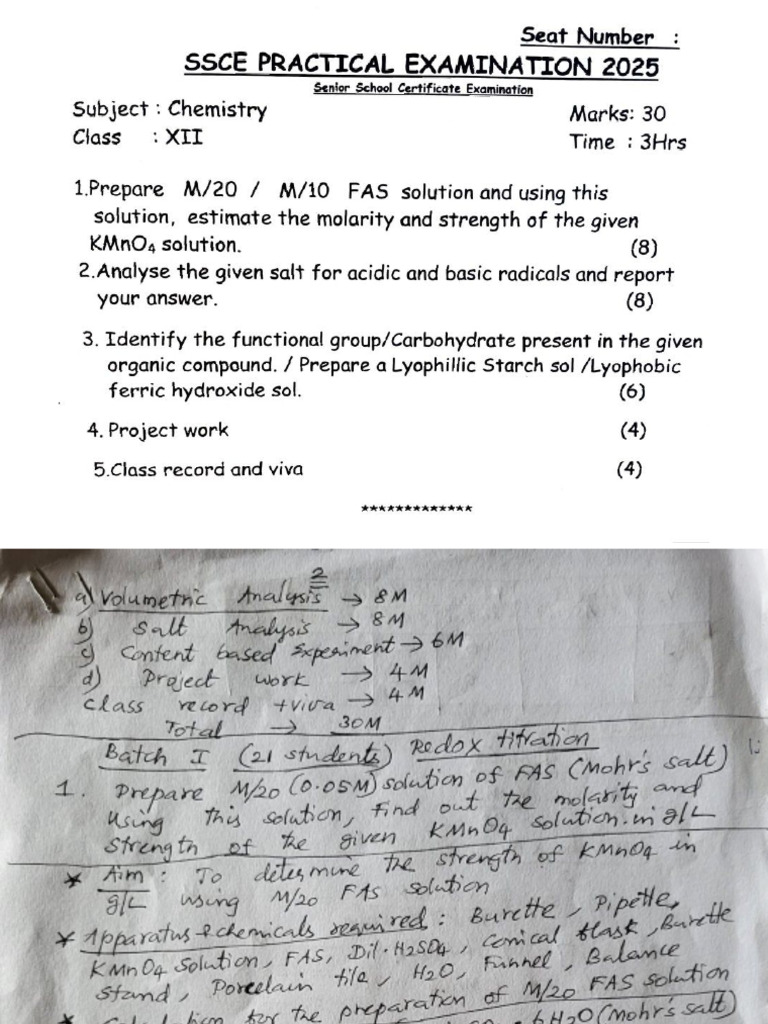 Seat Number :
SSCE PRACTICAL EXAMINATION 2025
Senior School Certificate Examination
Subject : Chemistry Marks: 30
Class : XII Time : 3Hrs
1.Prepare M/20 / M/10 FAS solution and using this
solution, estimate the molarity and strength of the given
KMnO₄ solution. (8)
2.Analyse the given salt for acidic and basic radicals and report
your answer. (8)
3. Identify the functional group/Carbohydrate present in the given
organic compound. / Prepare a Lyophillic Starch sol /Lyophobic
ferric hydroxide sol. (6)
4. Project work (4)
5.Class record and viva (4)
*************
2
a) Volumetric Analysis → 8M
b) Salt Analysis → 8M
c) Content based Experiment → 6M
d) Project work → 4M
Class record + viva → 4M
Total → 30M
Batch I (21 students) Redox titration
1. Prepare M/20 (0.05M) solution of FAS (Mohr's salt)
Using this solution, find out the molarity and
strength of the given KMnO₄ solution in g/L
* Aim : To determine the strength of KMnO₄ in
g/L using M/20 FAS solution
* Apparatus & chemicals required : Burette, Pipette,
KMnO₄ solution, FAS, Dil. H₂SO₄, Conical flask, Burette
stand, Porcelain tile, H₂O, Funnel, Balance
* Calculation for the preparation of M/20 FAS solution
6H₂O (Mohr's salt)